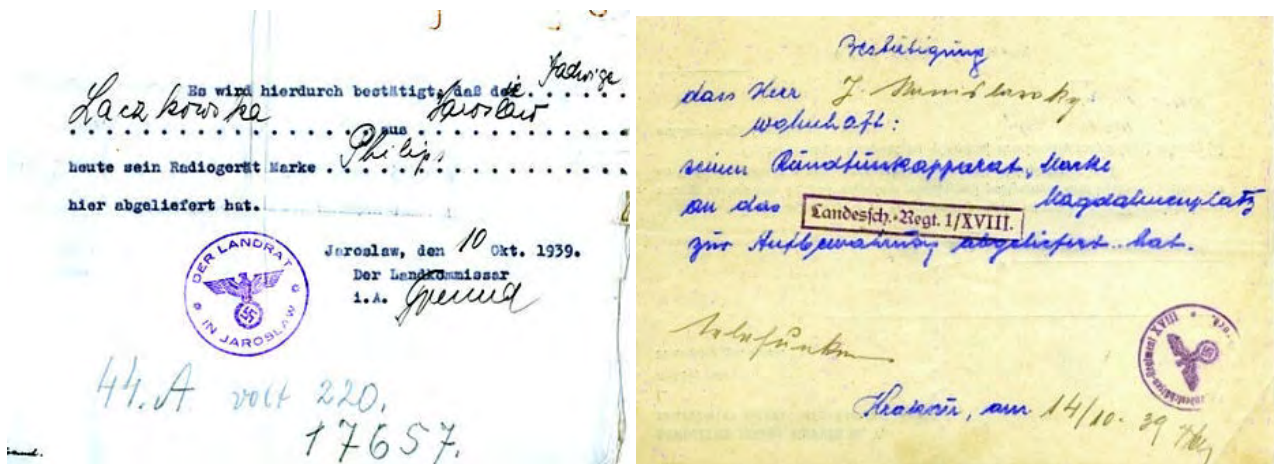 Jadwiga
Es wird hierdurch bestätigt, daß die
Laczkowska aus Jaroslaw
heute sein Radiogerät Marke Philips
hier abgeliefert hat.
Jaroslaw, den 10 Okt. 1939.
Der Landkommissar
i.A.
DER LANDRAT
IN JAROSLAW
44.A volt 220.
17657.
Bestätigung
dass Herr J.
wohnhaft:
seinen Rundfunkapparat, Marke
an das Landessch.-Regt. 1/XVIII. Magdalenenplatz
zur Aufbewahrung abgeliefert hat.
Telefunken
Krakau, am 14/10. 39